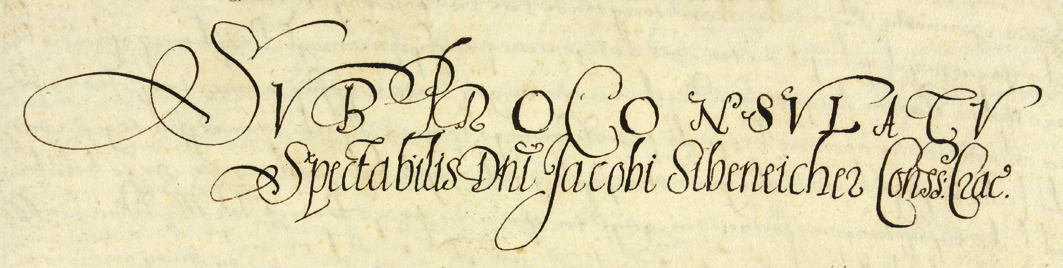 SVB PROCONSVLATV
Spectabilis Dnī Jacobi Sibeneicher Conss. Crac.